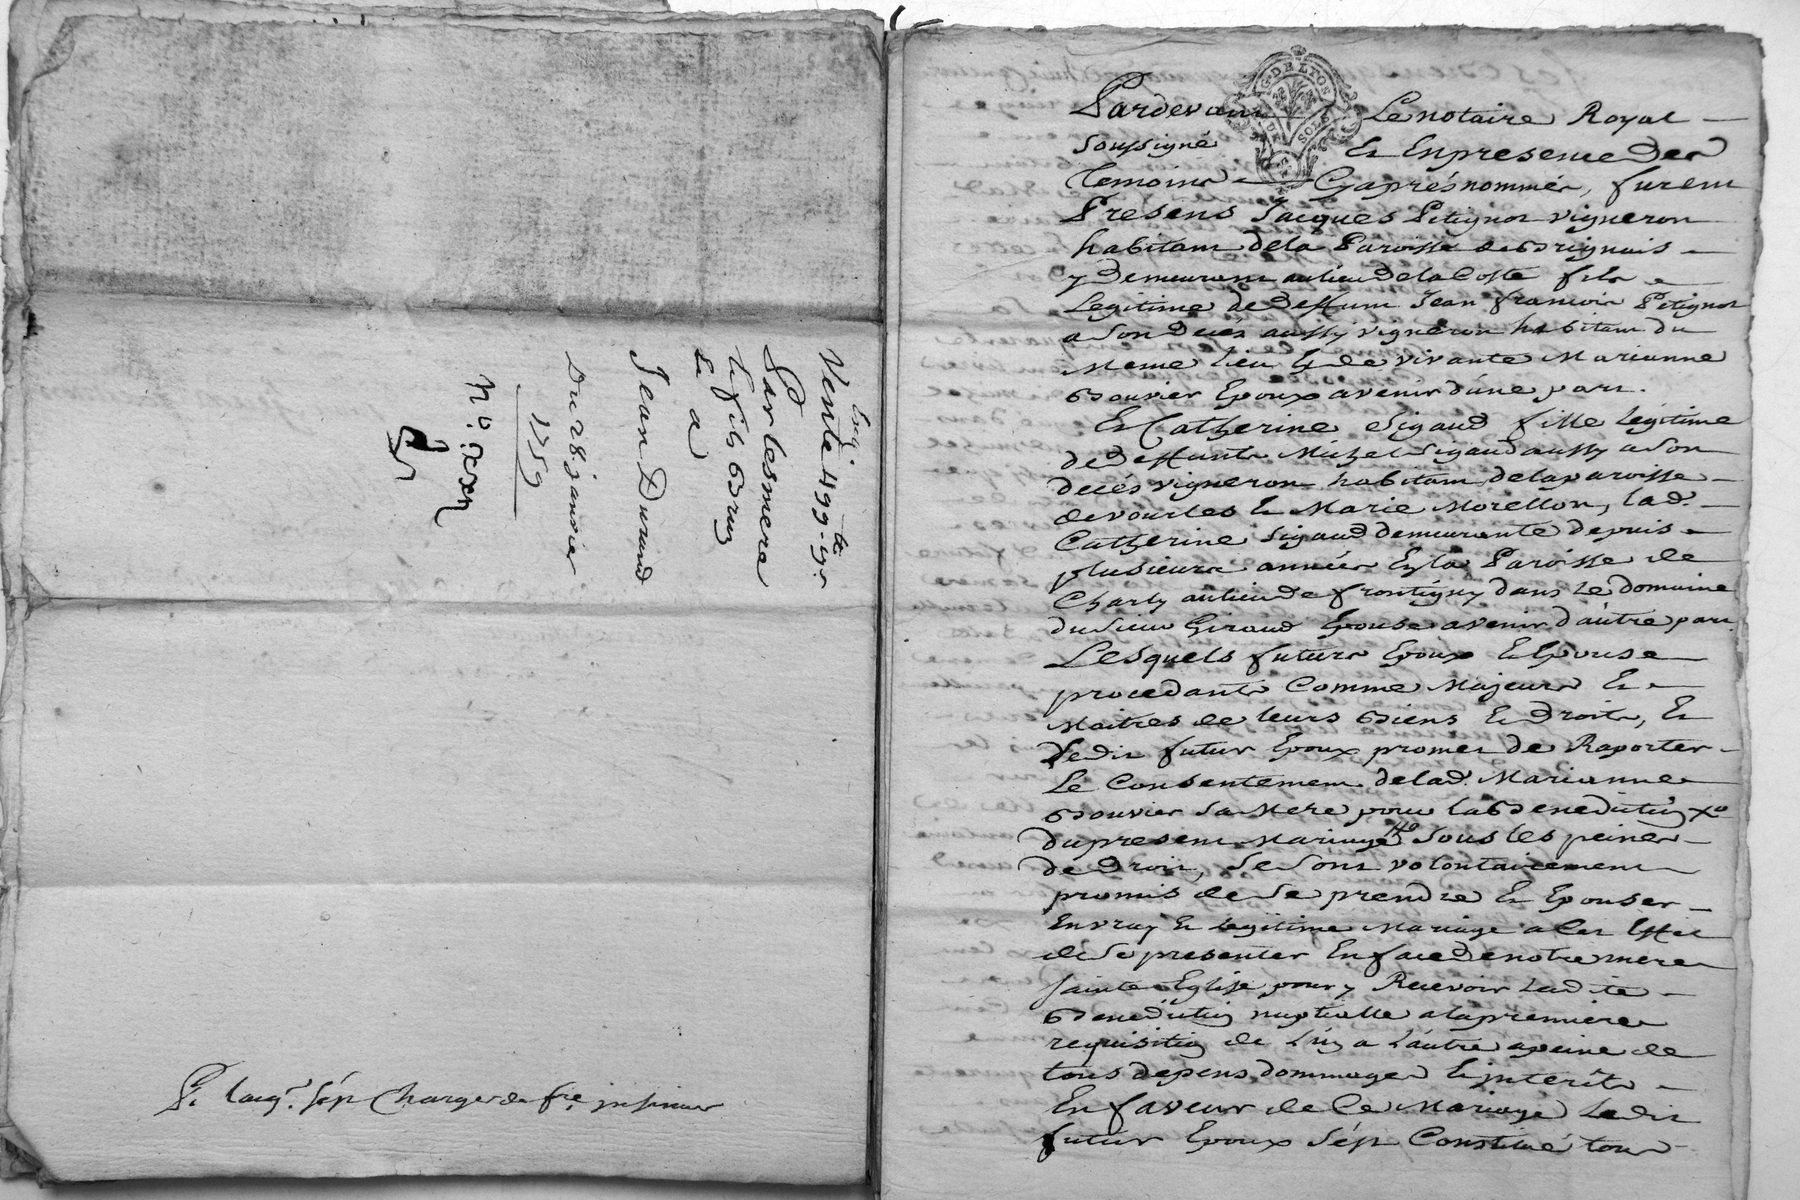 Vente 499-y.
Par les mere
& fils Bruy
Et a
Jean Durand
Du 28 janvier
1759
N°.
P. l'acq.r s'est Chargé de fre
Pardevant Le notaire Royal
Soussigné Et En presence Des
Temoins Cy aprés nommés, furent
Presens Jacques Petignot vigneron
habitant de la Paroisse de Brignais
y Demeurant au lieu de la Coste fils
Legitime de deffunt Jean francois Petignot
a Son Decés aussy vigneron habitant du
Meme lieu Et de vivante Marianne
Bouvier Epoux avenir d'une part.
Et Catherine Sigaud fille Legitime
de deffunt Michel Sigaud aussy a Son
decés vigneron habitant de la paroisse
de vourles & Marie Morellon, lad.
Catherine Sigaud demeurante depuis
plusieurs années En la Paroisse de
Charly au lieu de frontigny dans Le domaine
du Sieur Giraud Epouse avenir d'autre part.
Lesquels futurs Epoux Et Epouse
procedants Comme Majeurs Et
Maitres de leurs Biens Et Droits, Et
Ledit futur Epoux promet de Raporter
Le Consentement de lad. Marianne
Bouvier Sa Mere pour la Benediction
du present Mariage Sous les peines
de Droit, Se Sont volontairement
promis de Se prendre Et Epouser
En vray Et legitime Mariage a Cet Effet
de Se presenter En face de notre mere
Sainte Eglise pour y Recevoir Ladite
Benediction nuptialle a la premiere
requisition de L'un a L'autre a peine de
tous depens, dommages Et interêts
En faveur de Ce Mariage Ledit
futur Epoux s'est Constitué tous